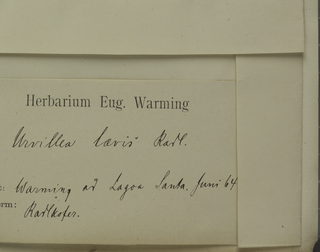 Herbarium Eug. Warming
Urvillea lævis Radl.
: Warming ad Lagoa Santa. Juni 64
rm: Radlkofer.